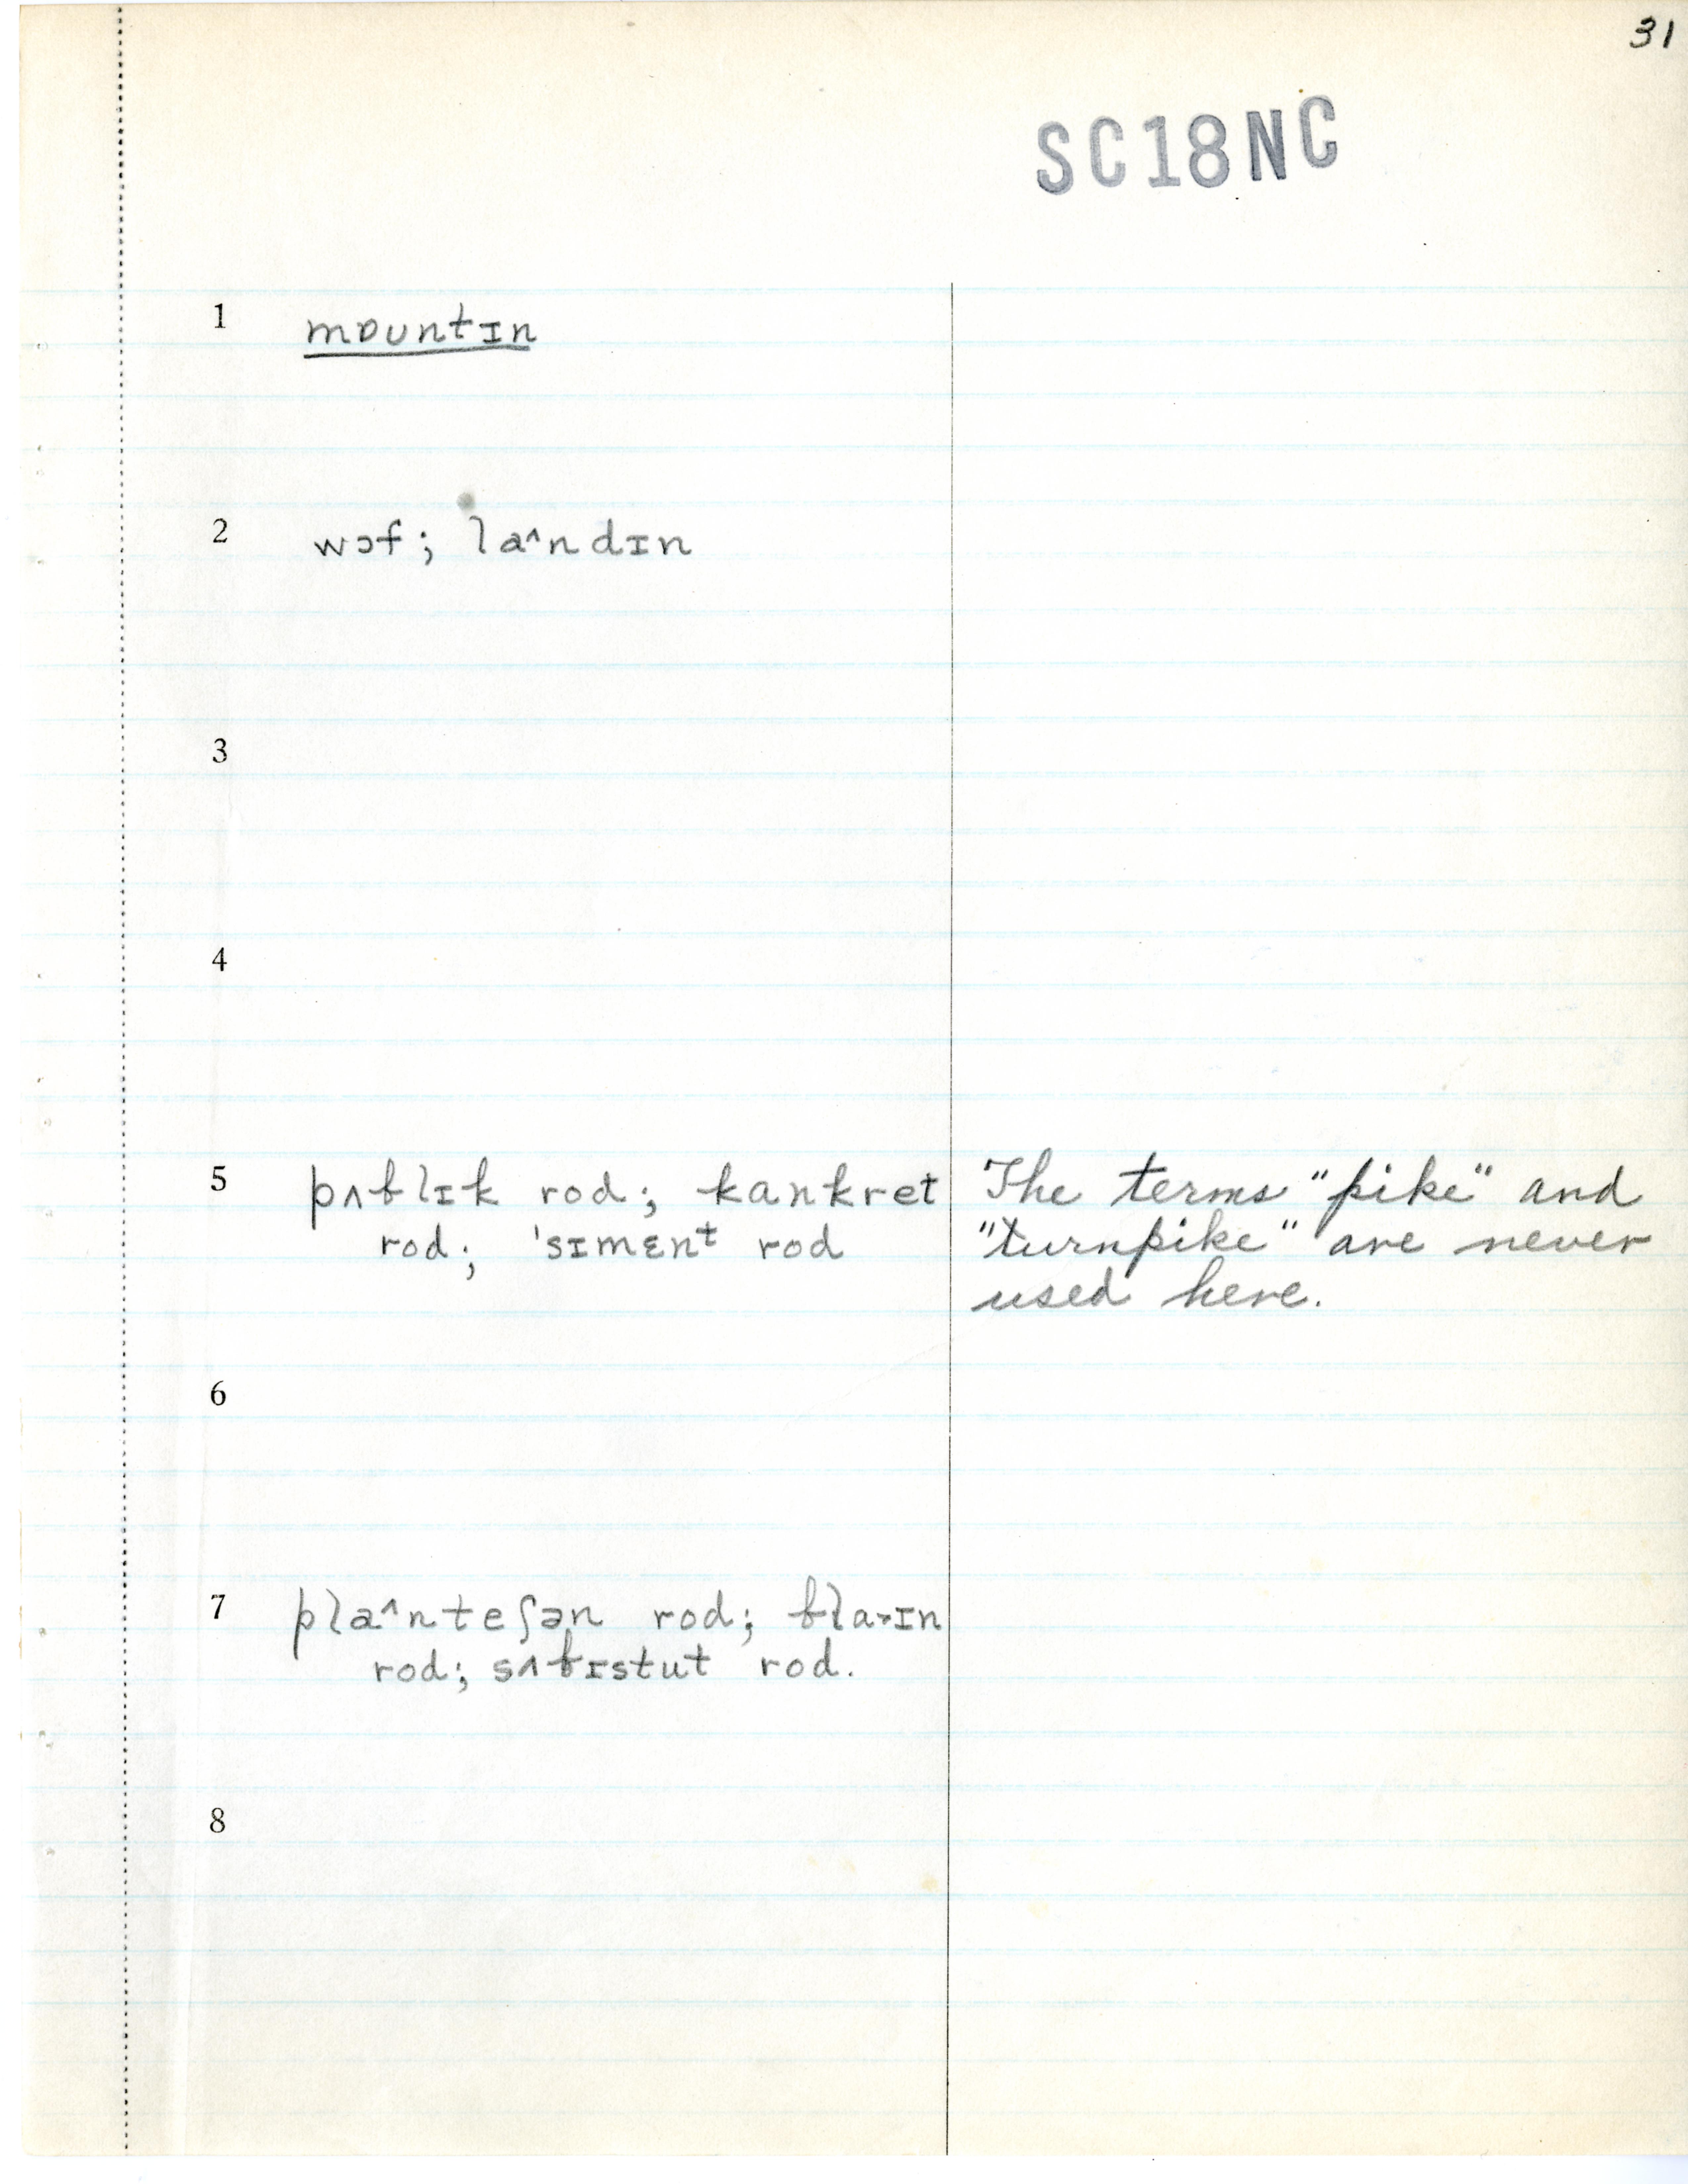 31
SC18NC
1 mɒuntɪn
2 wɔf; la^ndɪn
3
4
5 pʌblɪk rod; kankret
rod; 'sɪmɛnᵗ rod
The terms "pike" and
"turnpike" are never
used here.
6
7 pla^nteʃən rod; bla˃ɪn
rod; sʌbɪstut rod.
8